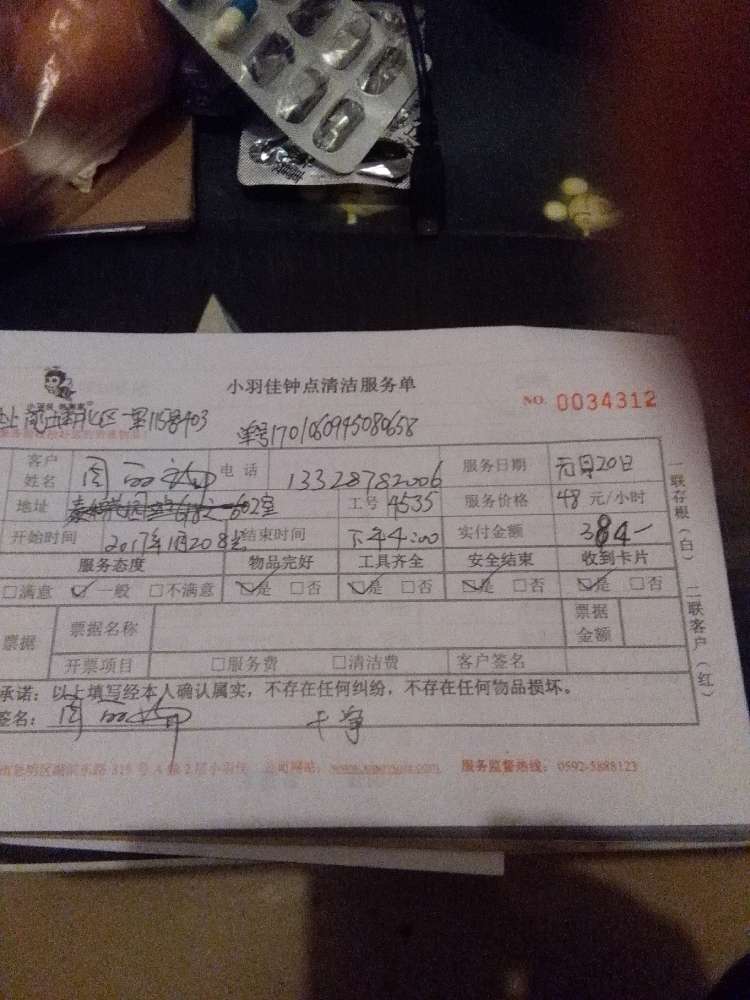 小羽佳钟点清洁服务单
NO. 0034312
里1158号403
单号1701060945080658
客户姓名 周 电话 13328782006 服务日期 元月20日
地址 602室 工号 4535 服务价格 48 元/小时
开始时间 2017年1月20 8 结束时间 下午4:00 实付金额 384-
服务态度 物品完好 工具齐全 安全结束 收到卡片
□满意 ☑一般 □不满意 ☑是 □否 ☑是 □否 ☑是 □否 ☑是 □否
票据 票据名称 票据金额
开票项目 □服务费 □清洁费 客户签名
承诺:以上填写经本人确认属实,不存在任何纠纷,不存在任何物品损坏。
签名: 周 干净
路 819 号 A 2层小羽佳 公司网站: 服务监督热线:0592-5888123
一联存根(白) 二联客户(红)